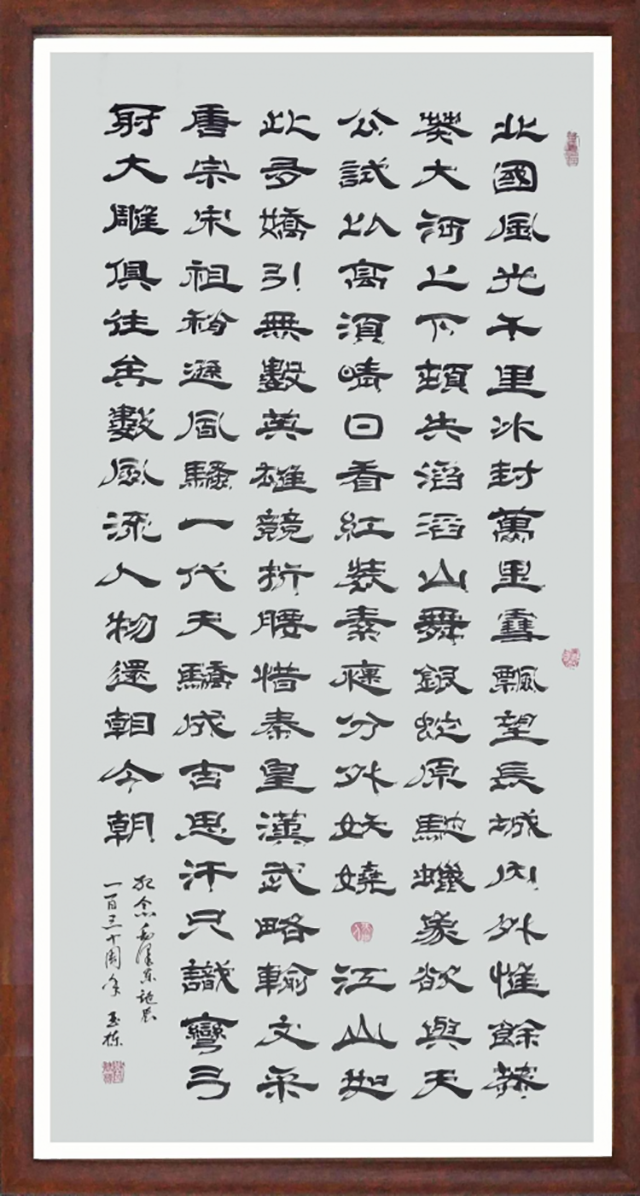 北國風光千里冰封萬里雪飄望長城內外惟餘莽
莽大河上下頓失滔滔山舞銀蛇原馳蠟象欲與天
公試比高須晴日看紅裝素裹分外妖嬈 江山如
此多嬌引無數英雄競折腰惜秦皇漢武略輸文采
唐宗宋祖稍遜風騷一代天驕成吉思汗只識彎弓
射大雕俱往矣數風流人物還看今朝
紀念毛澤東誕辰
一百三十周年 玉栋